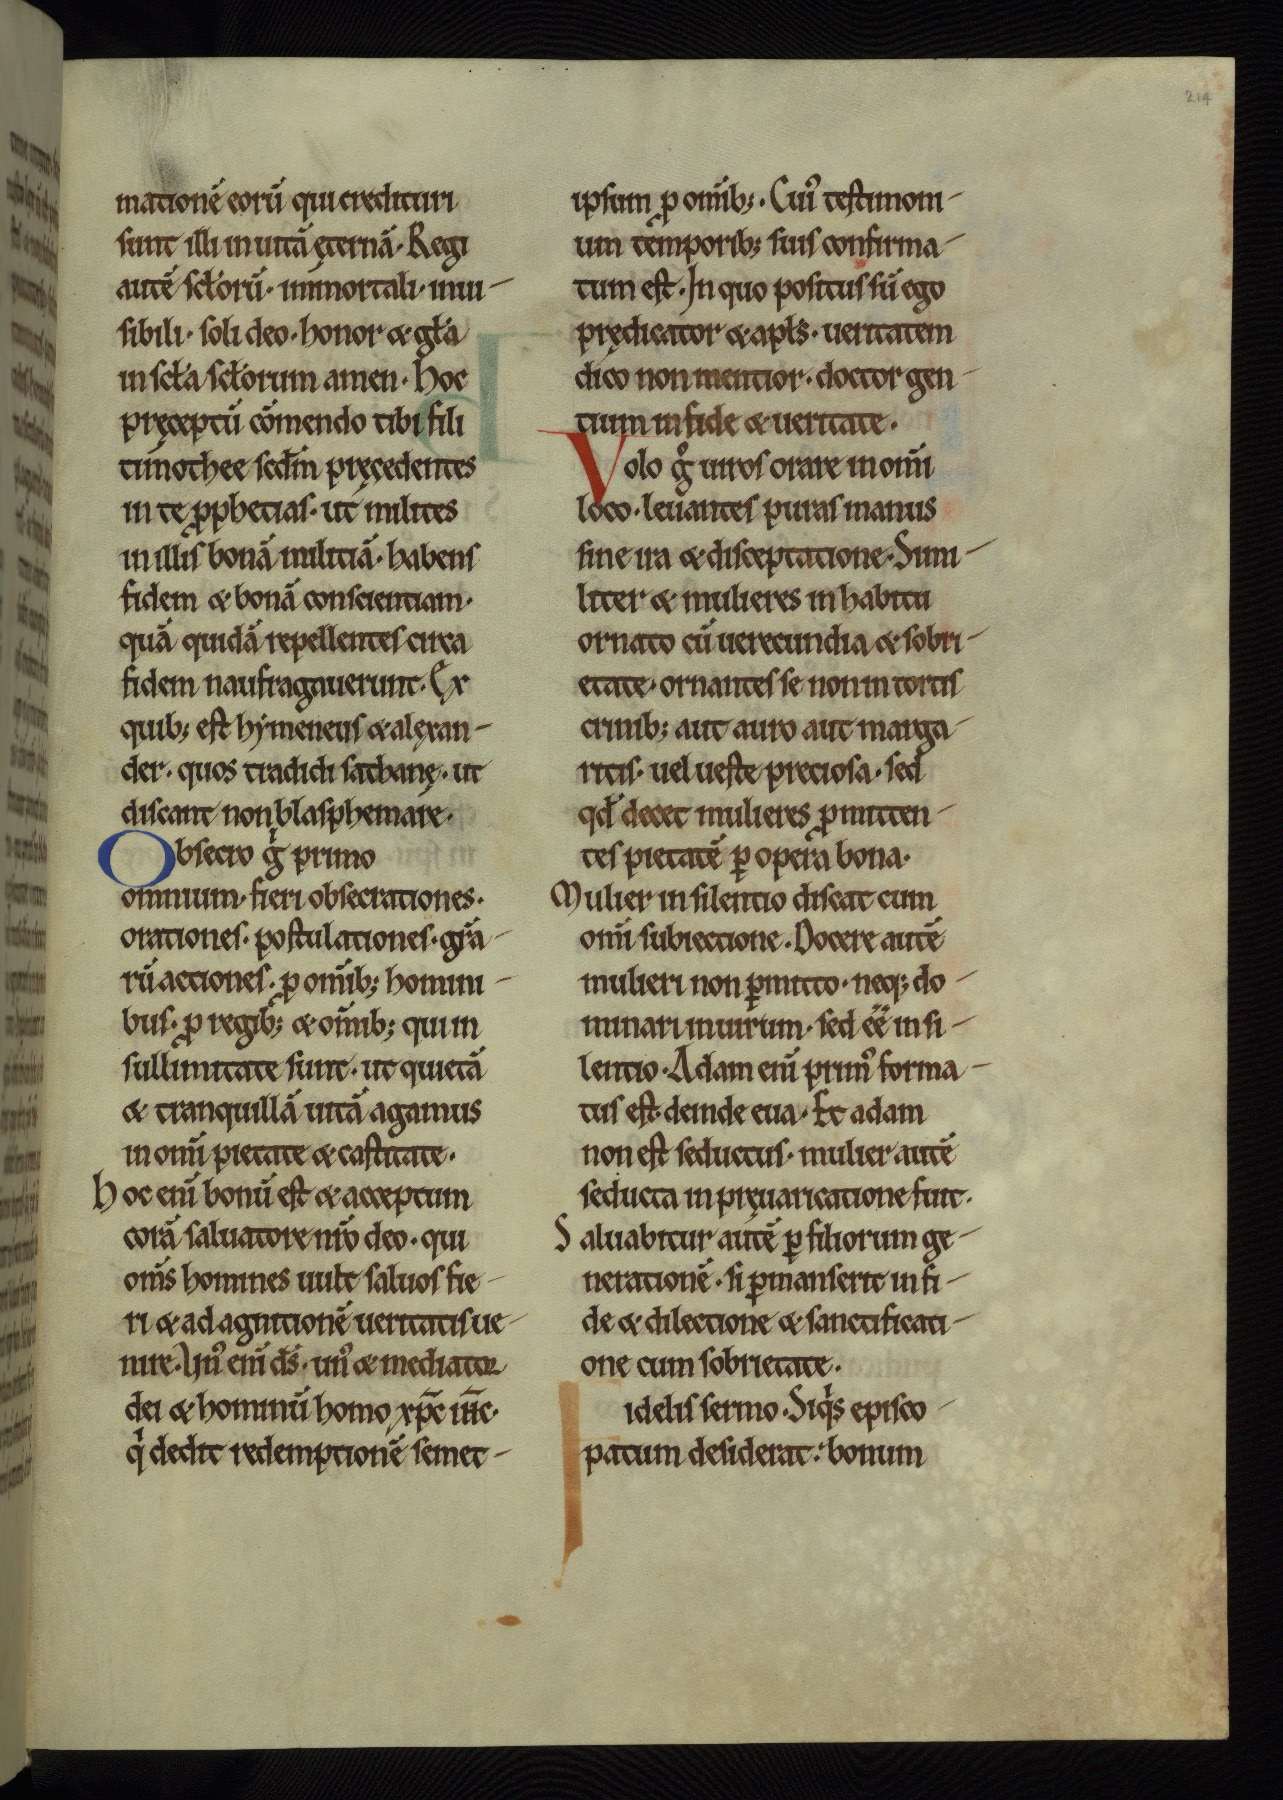 214
mationē eorū qui credituri
sunt illi in uitā ęternā. Regi
autē sclorū. immortali. inui-
sibili. soli deo. honor & gła
in scła scłorum amen. Hoc
pręceptū cōmendo tibi fili
timothee scdm̄ pręcedentes
in te p̱phetias. ut milites
in illis bonā militiā. habens
fidem & bonā conscientiam.
quā quidā repellentes circa
fidem naufragauerunt. Ex
quib; est hymeneus & alexan-
der. quos tradidi sathanę. ut
discant non blasphemare.
Obsecro gͥ primo
omnium. fieri obsecrationes.
orationes. postulationes. gr̄a-
rū actiones. ꝓ om̄ib; homini-
bus. ꝓ regib; & om̄ib; qui in
sullimitate sunt. ut quietā
& tranquillā uitā agamus
in om̄i pietate & castitate.
Hoc eni̅ bonū est & acceptum
corā saluatore nr̄o deo. qui
om̄s homines uult saluos fie-
ri & ad agnitionē ueritatis ue-
nire. Unꝰ eni̅ ds̄. unꝰ & mediator
dei & hominū homo xp̄c ih̄c.
qͥ dedit redemptionē semet-
ipsum ꝓ om̄ib;. Cuiꝰ testimoni-
um temporib; suis confirma-
tum est. In quo positus sū ego
prędicator & apłs. ueritatem
dico non mentior. doctor gen-
tium in fide & ueritate.
Volo gͦ uiros orare in om̄i
loco. leuantes puras manus
sine ira & disceptatione. Simi-
liter & mulieres in habitu
ornato cū uerecundia & sobri-
etate. ornantes se non in tortis
crinib; aut auro aut marga-
ritis. uel ueste preciosa. sed
qđ decet mulieres ꝓmitten-
tes pietatē ꝑ opera bona.
Mulier in silentio discat cum
om̄i subiectione. Docere autē
mulieri non ꝑmitto. neq; do-
minari in uirum. sed eē in si-
lentio. Adam eni̅ primꝰ forma-
tus est. deinde eua. Et adam
non est seductus. mulier autē
seducta in pręuaricatione fuit.
Saluabitur autē ꝑ filiorum ge-
nerationē. si ꝑmanserit in fi-
de & dilectione & sanctificati-
one cum sobrietate.
Fidelis sermo. Siqͥs episco-
patum desiderat: bonum